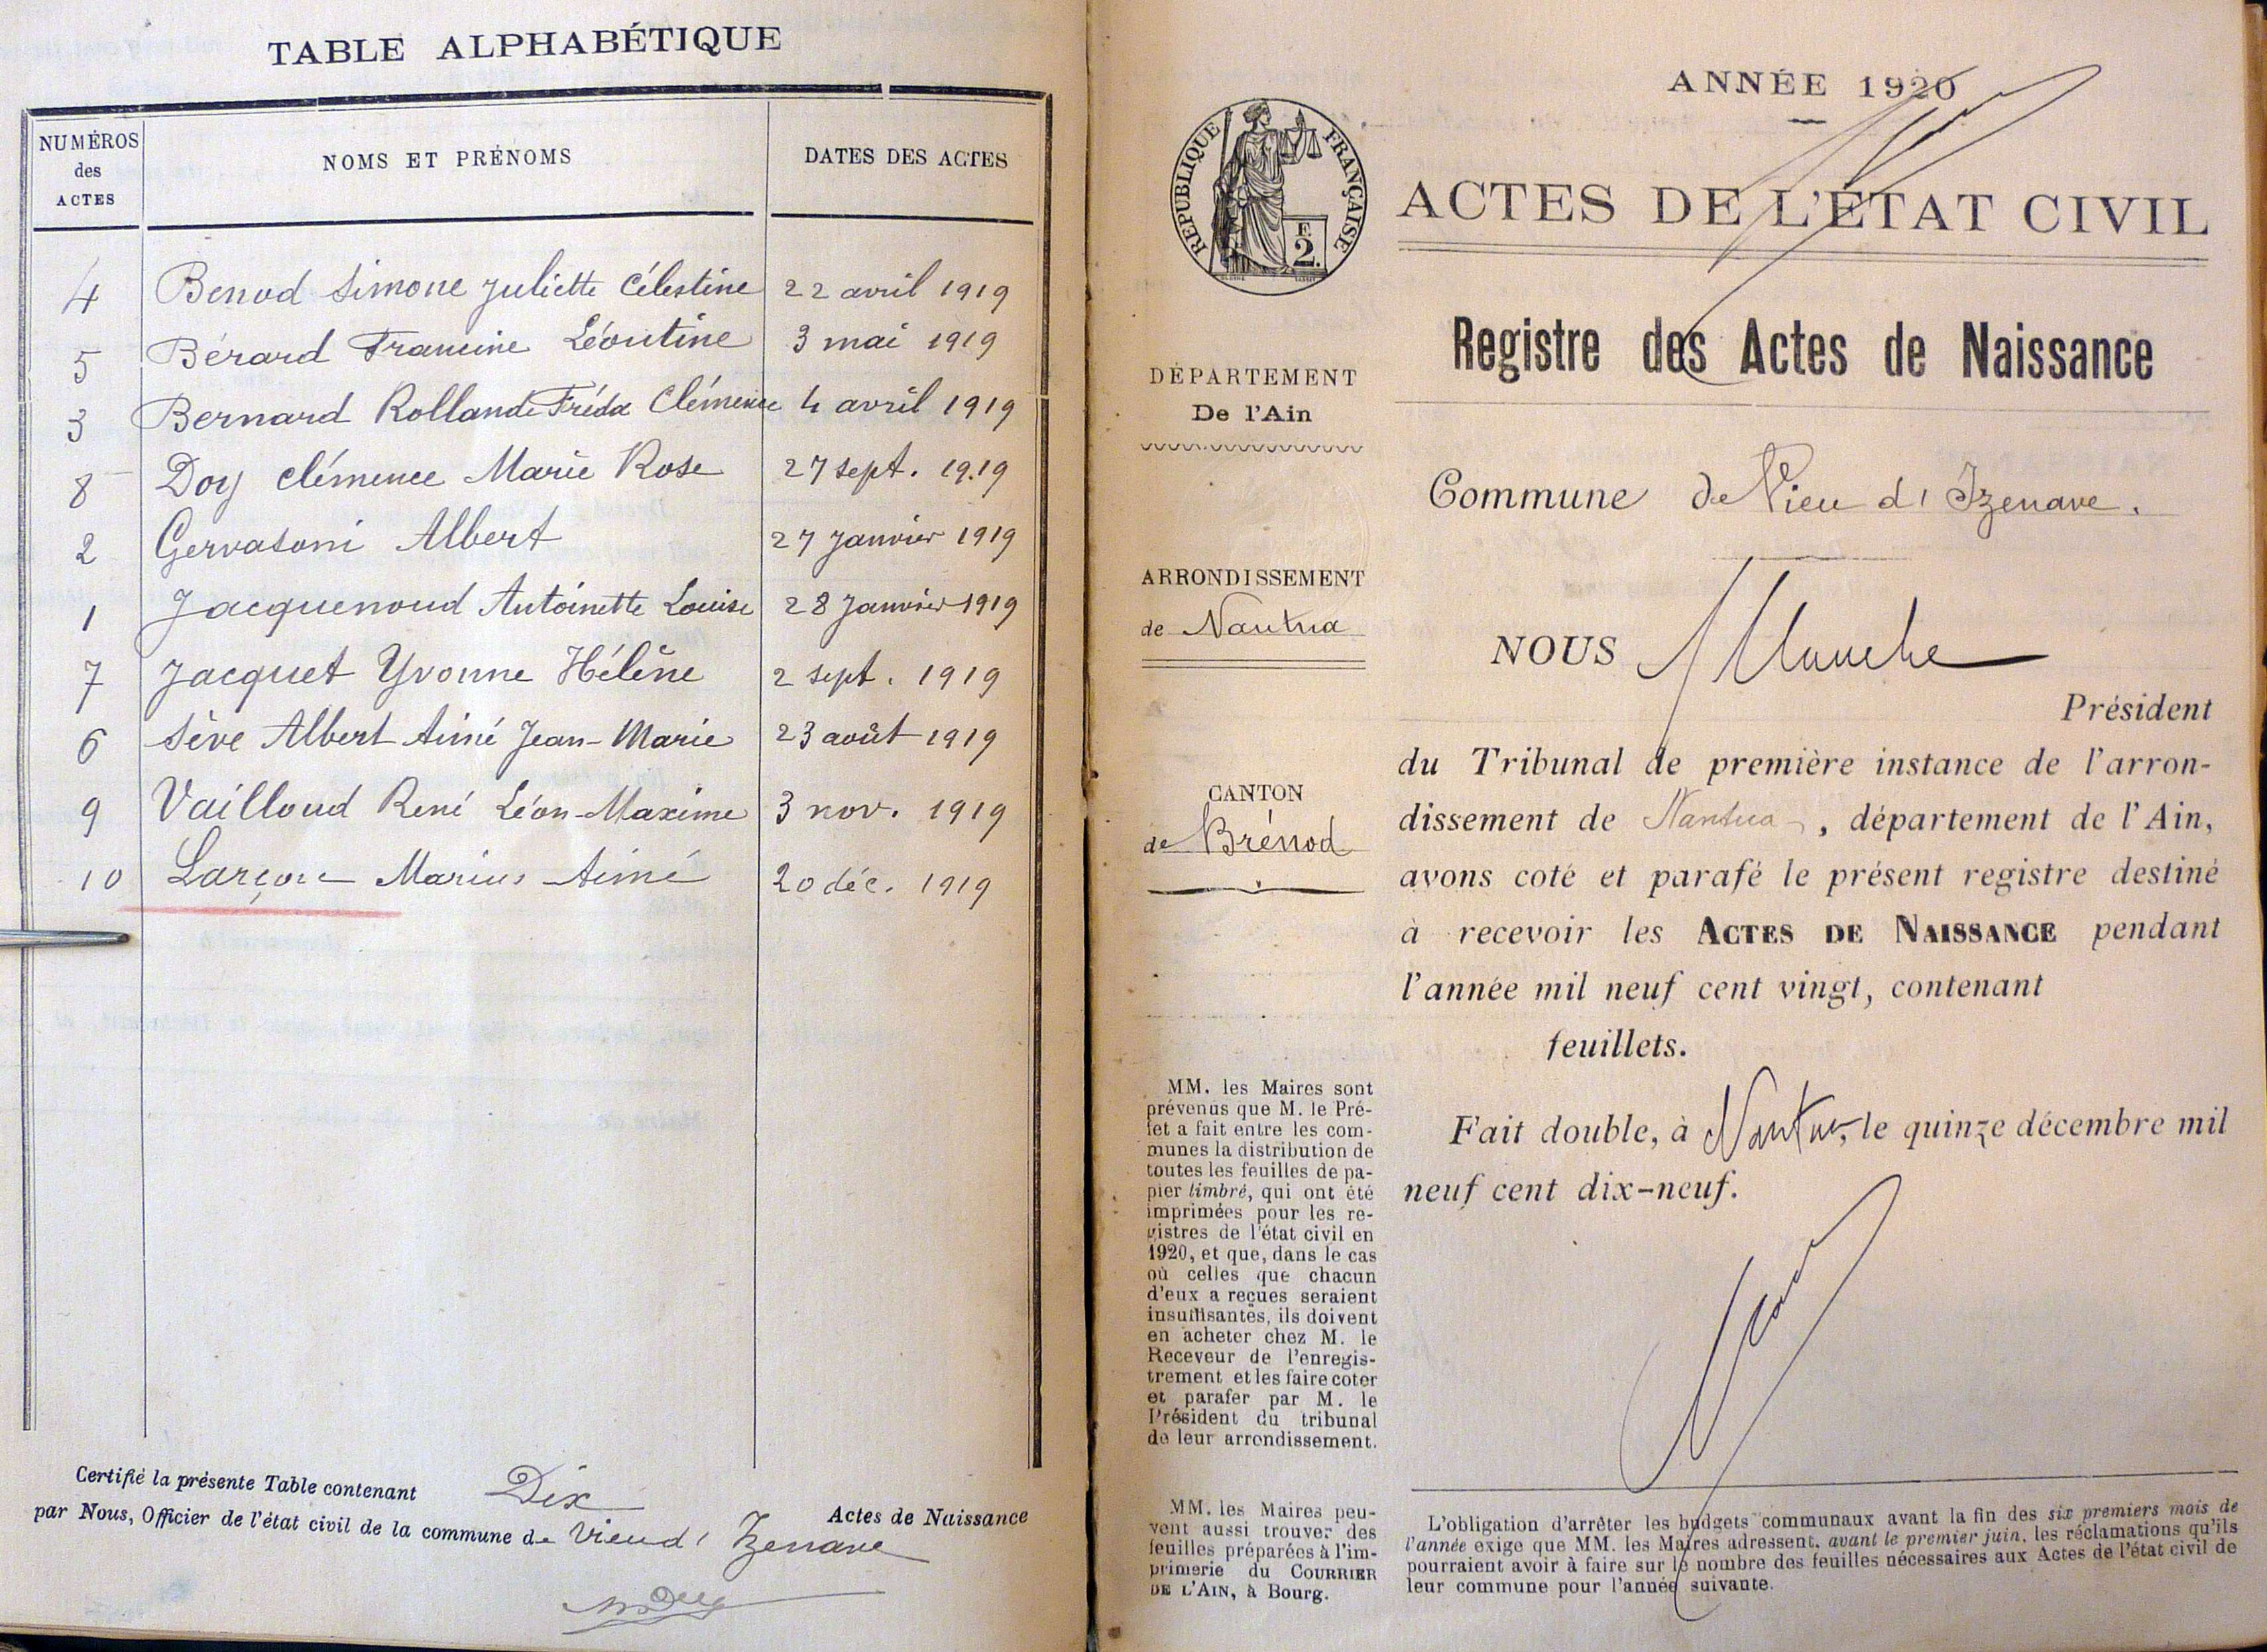 TABLE ALPHABÉTIQUE
NUMÉROS
des
ACTES
NOMS ET PRÉNOMS
DATES DES ACTES
4 Benod Simone Juliette Célestine 22 avril 1919
5 Bérard Francine Léontine 3 mai 1919
3 Bernard Rollande Fréda Clémence 4 avril 1919
8 Doy Clémence Marie Rose 27 sept. 1919
2 Gervasoni Albert 27 Janvier 1919
1 Jacquenoud Antoinette Louise 28 Janvier 1919
7 Jacquet Yvonne Hélène 2 sept. 1919
6 Sève Albert Aimé Jean-Marie 23 août 1919
9 Vailloud René Léon-Maxime 3 nov. 1919
10 Larçon Marius Aimé 20 déc. 1919
Certifié la présente Table contenant Dix Actes de Naissance
par Nous, Officier de l'état civil de la commune de Vieu d'Izenave
ANNÉE 1920
RÉPUBLIQUE FRANÇAISE
F.
2.
ACTES DE L'ÉTAT CIVIL
Registre des Actes de Naissance
DÉPARTEMENT
De l'Ain
Commune de Vieu d'Izenave.
ARRONDISSEMENT
de Nantua
NOUS
Président
du Tribunal de première instance de l'arron-
dissement de Nantua, département de l'Ain,
avons coté et parafé le présent registre destiné
à recevoir les ACTES DE NAISSANCE pendant
l'année mil neuf cent vingt, contenant
feuillets.
CANTON
de Brénod
Fait double, à Nantua, le quinze décembre mil
neuf cent dix-neuf.
MM. les Maires sont
prévenus que M. le Pré-
fet a fait entre les com-
munes la distribution de
toutes les feuilles de pa-
pier timbré, qui ont été
imprimées pour les re-
gistres de l'état civil en
1920, et que, dans le cas
où celles que chacun
d'eux a reçues seraient
insuffisantes, ils doivent
en acheter chez M. le
Receveur de l'enregis-
trement et les faire coter
et parafer par M. le
Président du tribunal
de leur arrondissement.
MM. les Maires peu-
vent aussi trouver des
feuilles préparées à l'im-
primerie du COURRIER
DE L'AIN, à Bourg.
L'obligation d'arrêter les budgets communaux avant la fin des six premiers mois de
l'année exige que MM. les Maires adressent, avant le premier juin, les réclamations qu'ils
pourraient avoir à faire sur le nombre des feuilles nécessaires aux Actes de l'état civil de
leur commune pour l'année suivante.